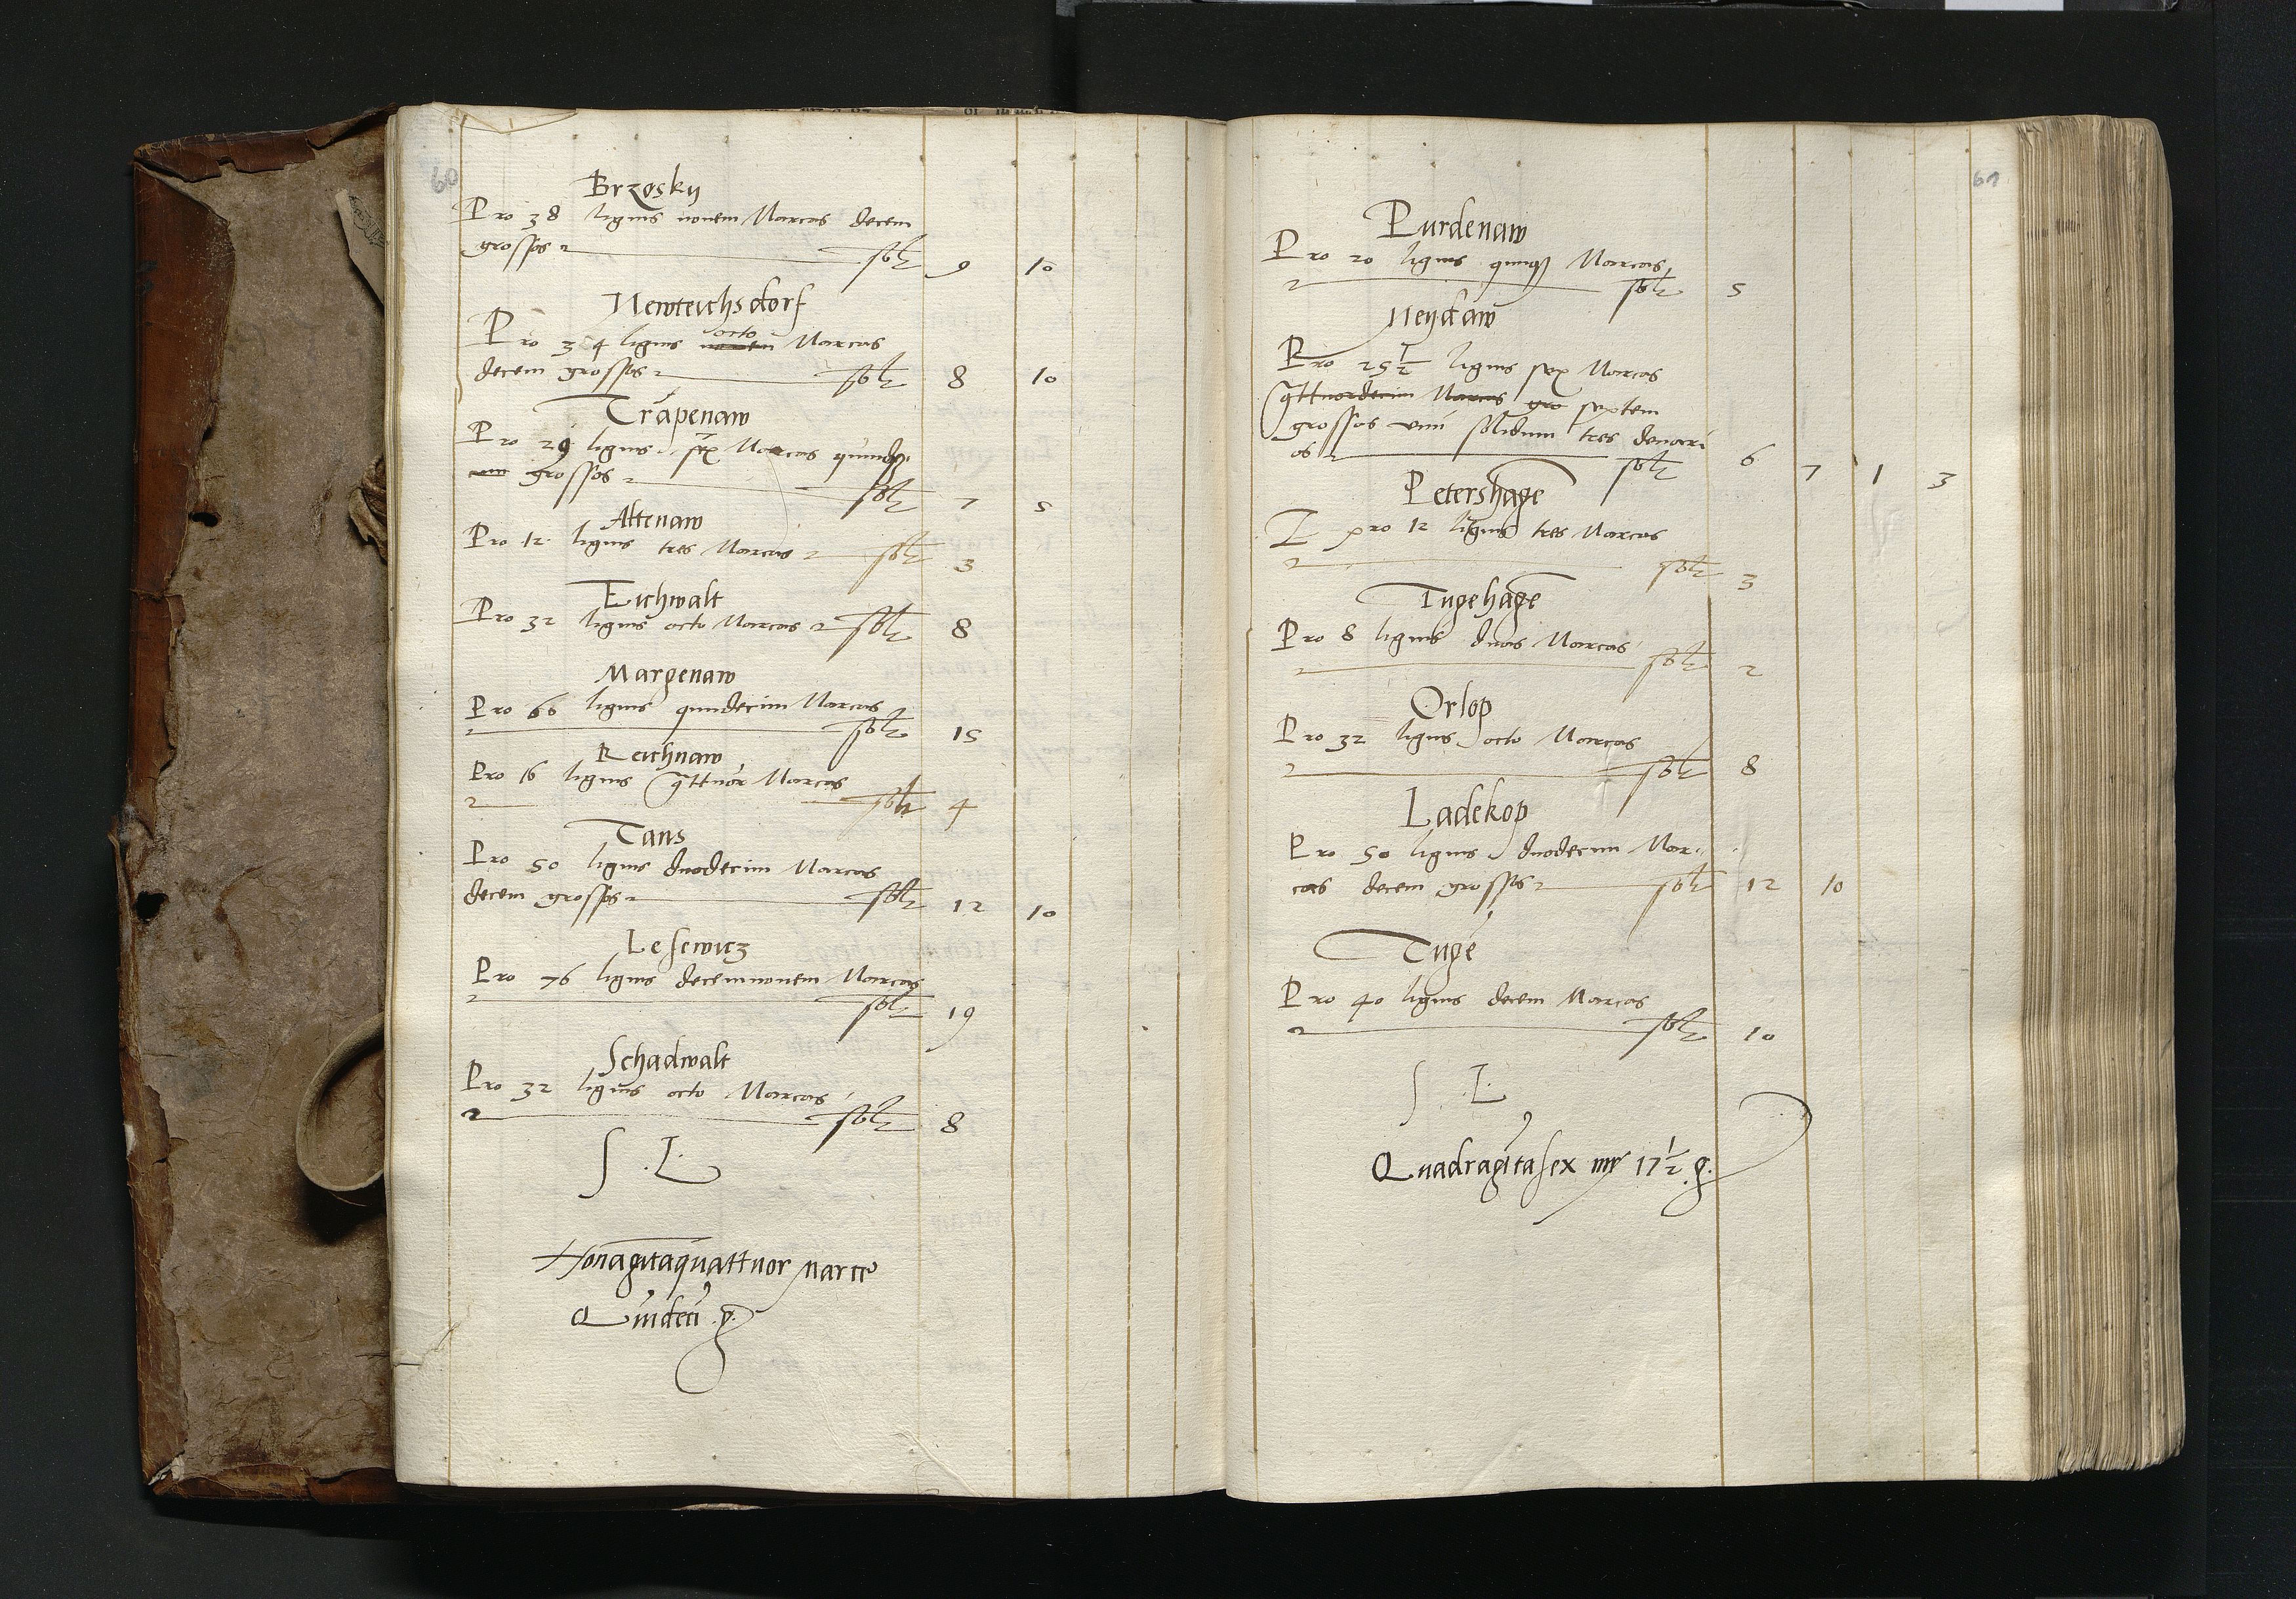 60
Brzosky
Pro 38 lignis novem Marcas decem
grossos solt 9 10
Newteichsdorf
Pro 34 lignis octo novem Marcas
decem grossos solt 8 10
Trapenaw
Pro 29 lignis sex Marcas
grossos solt 7 5
Altenaw
Pro 12 lignis tres Marcas solt 3
Eichwalt
Pro 32 lignis octo Marcas solt 8
Margenaw
Pro 66 lignis quindecim Marcas
solt 15
Reichnaw
Pro 16 lignis qttuor Marcas
solt 4
Tans
Pro 50 lignis duodecim Marcas
decem grossos solt 12 10
Lesewicz
Pro 76 lignis decemnovem Marcas
solt 19
Schadwalt
Pro 32 lignis octo Marcas
solt 8
S . L .
Nonagitaquattuor marce
Quideci g.
61
Purdenaw
Pro 20 lignis quinqz Marcas
solt 5
Neydaw
Pro 25 1/2 lignis sex Marcas
qttuordecim Marcas gro septem
grossos unu solidum tres denari
os solt 6 7 1 3
Petershage
pro 12 lignis tres Marcas
solt 3
Tugehage
Pro 8 lignis duas Marcas
solt 2
Orlop
Pro 32 lignis octo Marcas
solt 8
Ladekop
Pro 50 lignis duodecim Mar
cas decem grossos solt 12 10
Tuge
Pro 40 lignis decem Marcas
solt 10
S . L .
Quadragitasex mr 17 1/2 g.